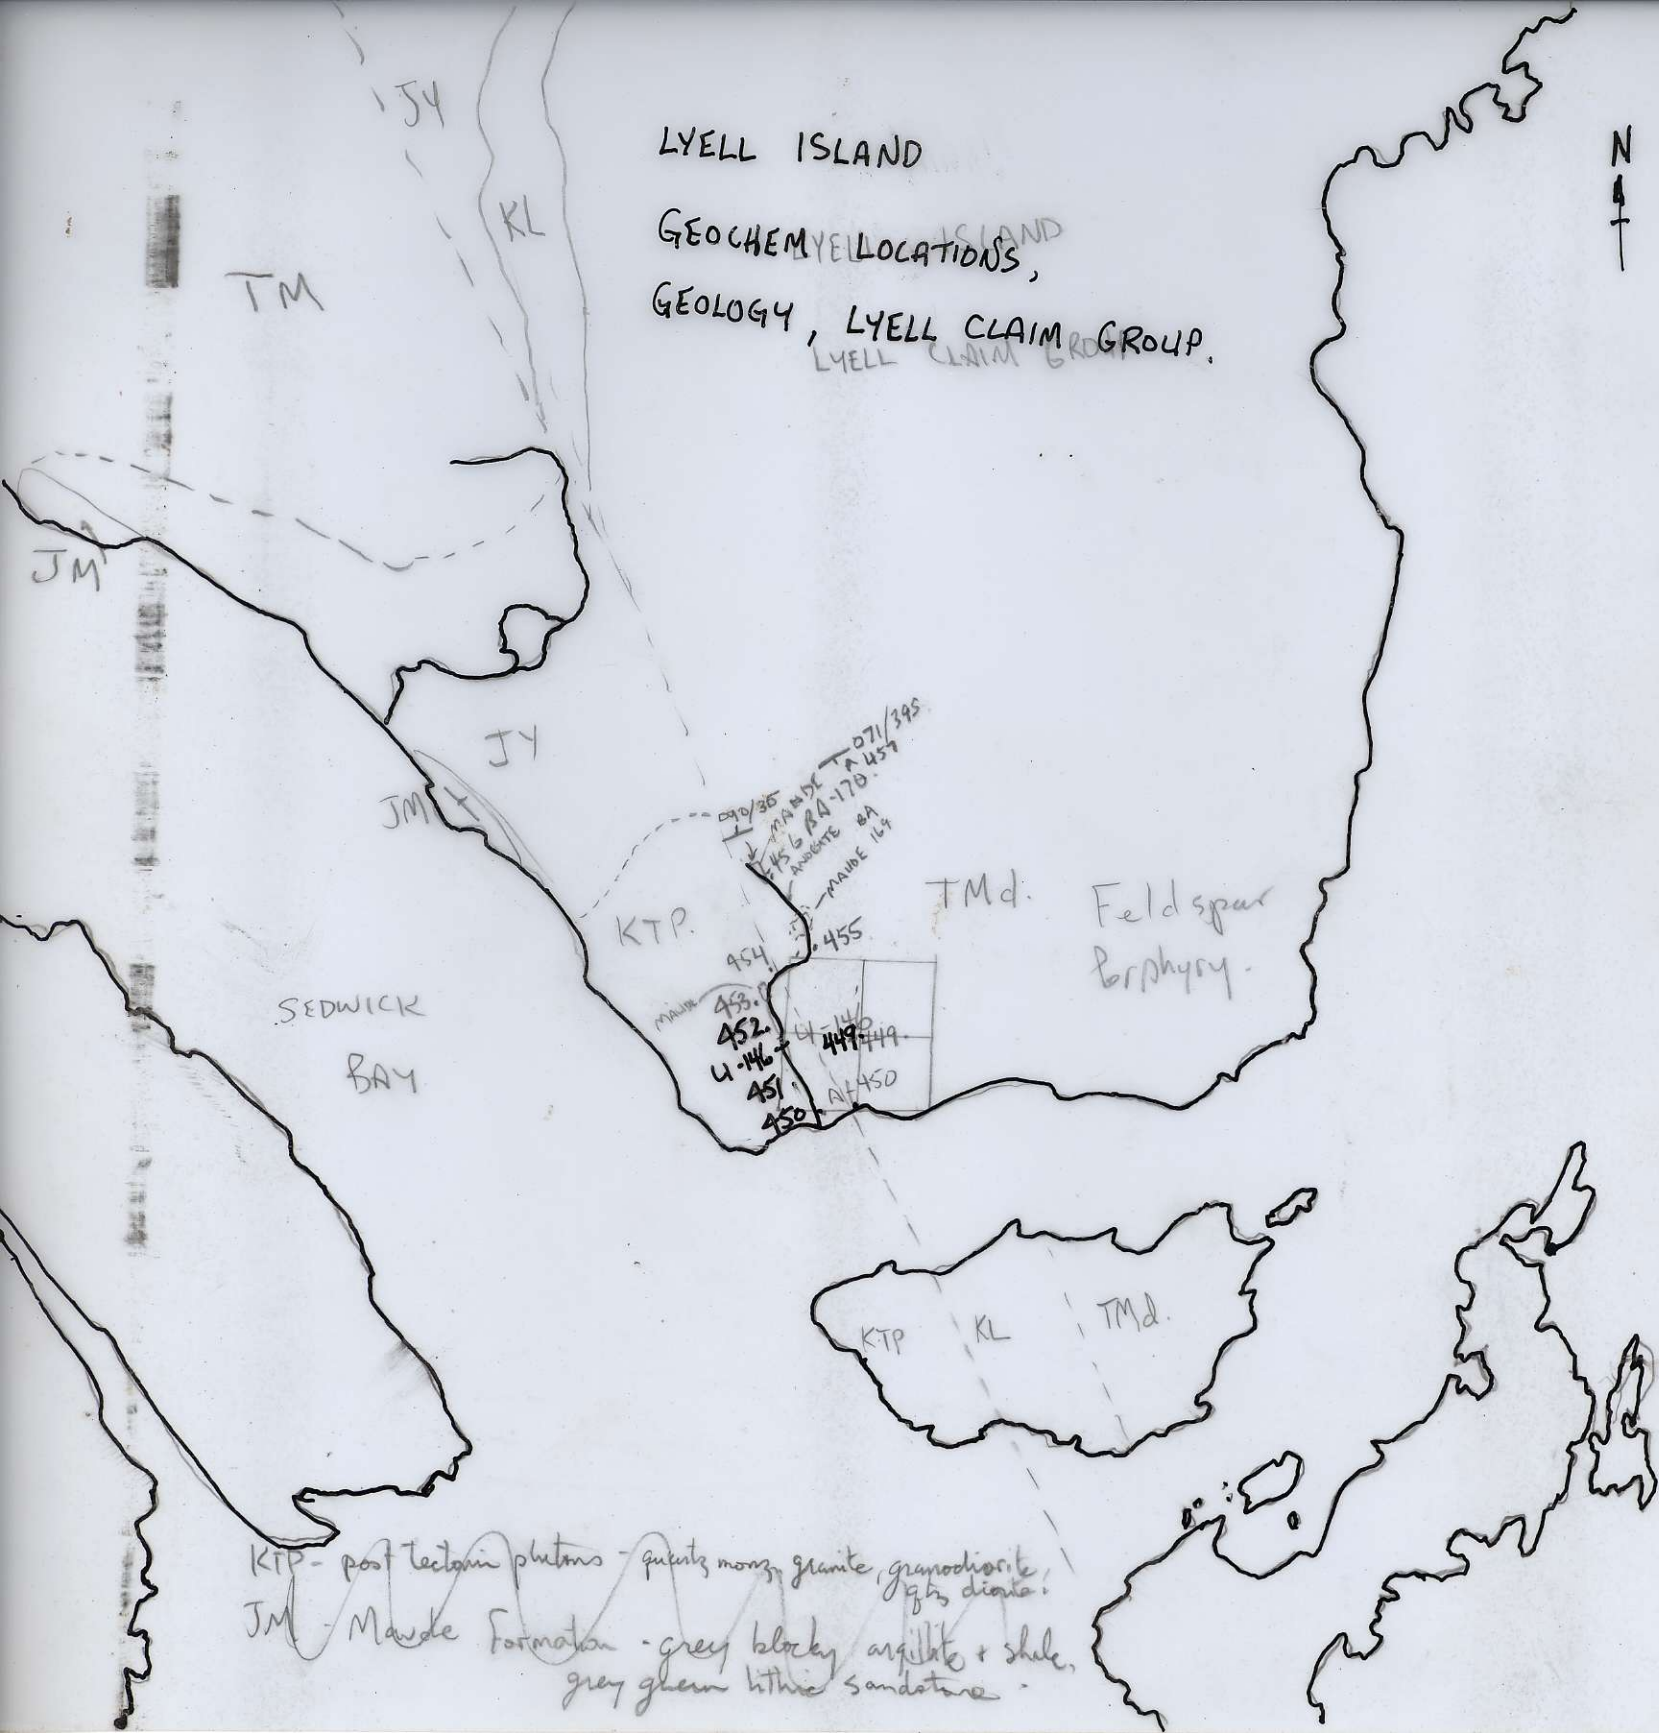 JY
KL
TM
LYELL ISLAND
GEOCHEM LOCATIONS,
LYELL ISLAND
GEOLOGY, LYELL CLAIM GROUP.
LYELL CLAIM GROUP
N
JM
JY
JM
071/395
A 457
MAUDE
456 BA-170.
090/35
ANDESITE BA
MAUDE 169
KTP.
TMd.
Feldspar
Porphyry.
454
.455
MAUDE
453.
452.
U-146
449
449.
U-146
451
A-450
450
SEDWICK
BAY
KTP
KL
TMd.
KTP - post tectonic plutons - quartz monz, granite, granodiorite,
qtz diorite.
JM - Maude Formation - grey blocky argillite + shale,
grey green lithic sandstone.